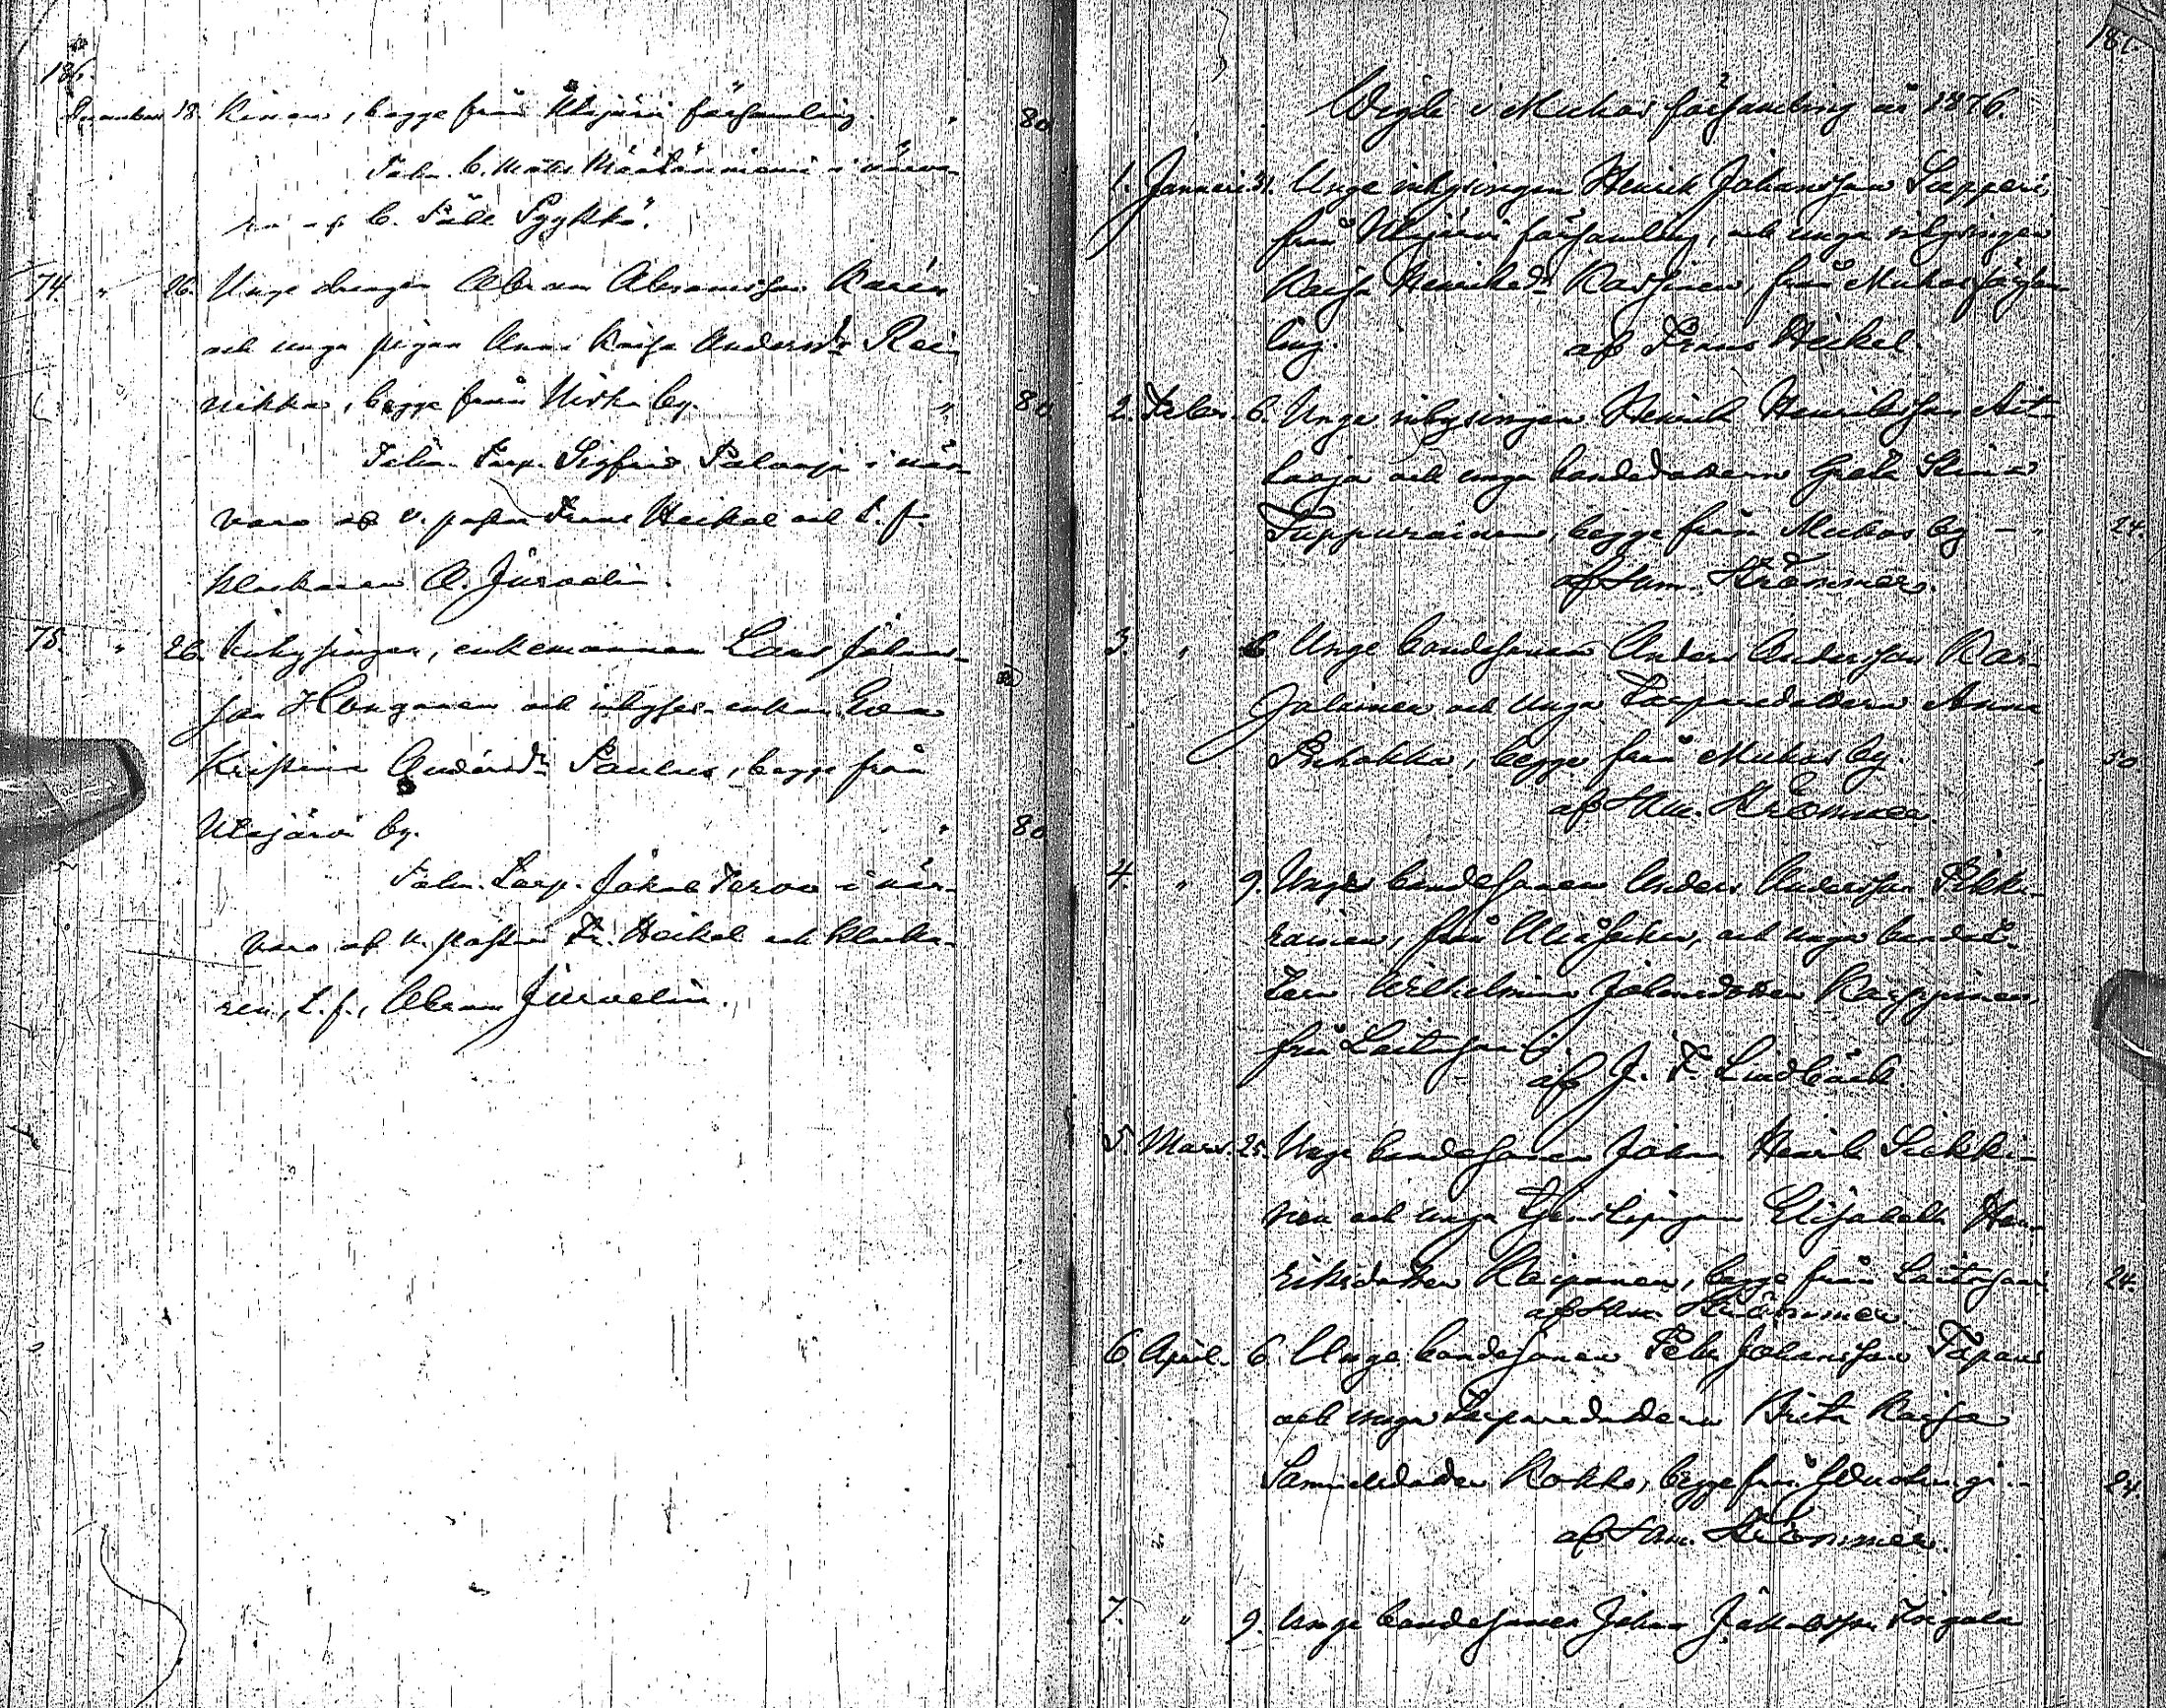 186.
December 18. Kinnu, begge från Utajärvi församling. " 80
Taln. b. Matts Määttänniemi i närva-
ra af b. Pälle Pyykkö.
74. " 26. Unge drängen Abram Abramsson Karén
och unga pigan Anna Kaisa Andersdr Rei-
nikka, begge från Niska by. " 80
Taln. Torp. Sigfrid Paloaja i när-
varo af v. pastor Frans Heikel och L. f.
klockaren A. Jurvelin.
75. " 26. Inhysingen, enkemannen Lars Johans-
son Honganen och inhyses-enkan Eva
Kristina Andersdr Paulus, begge från
Utajärvi by. " 80
Taln. Torp. Johan Tervo i när-
varo af v. pastor Fr. Heikel och klocka-
ren, L. f., Abram Jurvelin.
187.
Wigde i Muhos församling år 1876.
1. Januari 31. Unge inhysingen Henrik Johansson Supperi,
från Utajärvi församling, och unga inhysingen
Kaisa Henriksdr Karhinen, från Muhos försam-
ling. af Frans Heikel.
2. Febr. 6. Unge inhysingen Henrik Henriksson Ait-
taoja och unga bondedottern Greta Stina
Tuppurainen, begge från Muhos by — " 24.
af Sam. Krömmer.
3. " 6 Unge bondesonen Anders Andersson Kar-
jalainen och unga Torparedottern Anna
Pihokka, begge från Muhos by. " 50.
af Sam. Krömmer.
4. " 9. Unge bondesonen Anders Andersson Pikku-
rainen, från Ahosuku, och unga bondedot-
tern Wilhelmina Johansdotter Karppinen,
från Laitasaari.
af J. F. Lindbäck.
5. Mars. 25. Unge bondesonen Johan Henrik Suikki-
nen och unga tjenstepigan Elisabeth Hen-
riksdotter Keränen, begge från Laitasaari. 24.
af Sam. Krömmer.
6 April. 6. Unge bondesonen Petter Johansson Tapani
och unga Torparedottern Brita Kaisa
Samuelsdotter Kokko, begge från - 24.
af Sam. Krömmer.
7. " 9. Unge bondesonen Johan Jakobsson